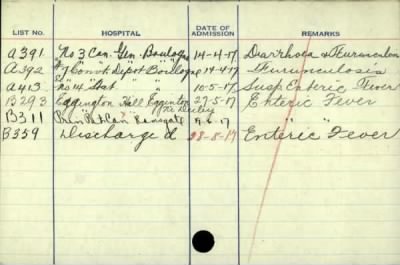 LIST NO. HOSPITAL DATE OF ADMISSION REMARKS
A391 No 3 Can. Gen. Boulogne 14-4-17 Diarrhoea & Furunculon
A392 No 7 Con't Depôt Boulogne 19-4-17 Furunculosis
A413 No 14 Stat " 10-5-17 Susp Enteric Fever
B293 Eggington Hall Egginton Nr Derby 27-5-17 Enteric Fever
B311 Can Ramsgate -6-17 " "
B359 Discharged 28-8-17 Enteric Fever